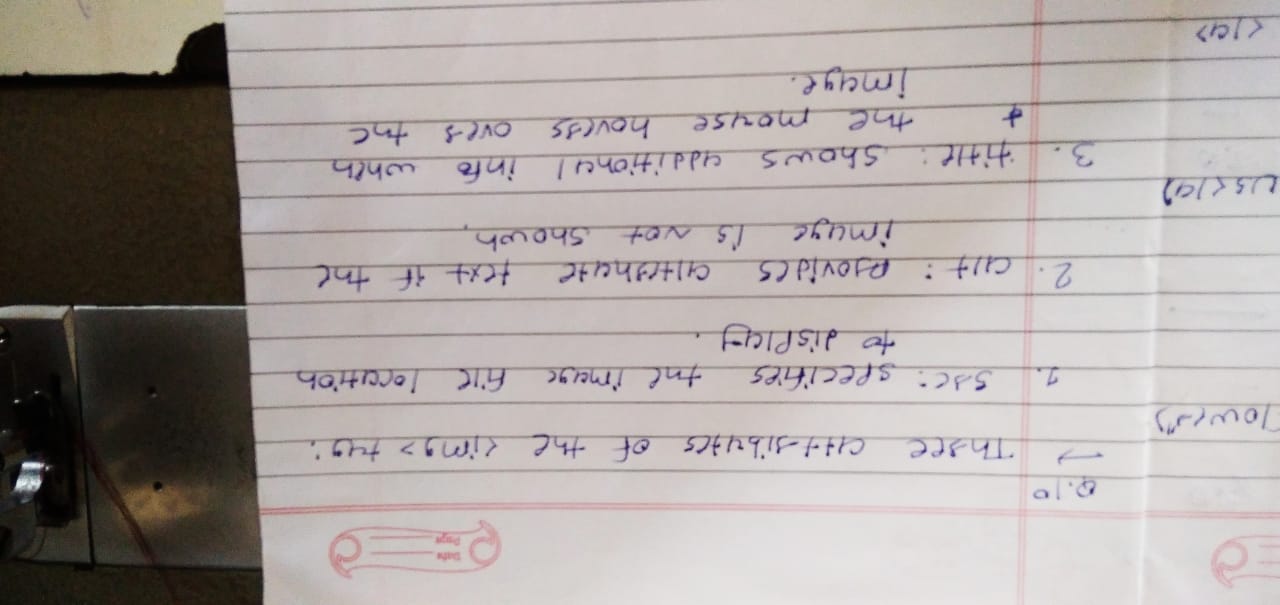 Date
Page
Q.10
→ Three attributes of the <img> tag:
1. src: specifies the image file location
to display.
2. alt: provides alternate text if the
image is not shown.
3. title: shows additional info when
the mouse hovers over the
image.
us</a>
</a>